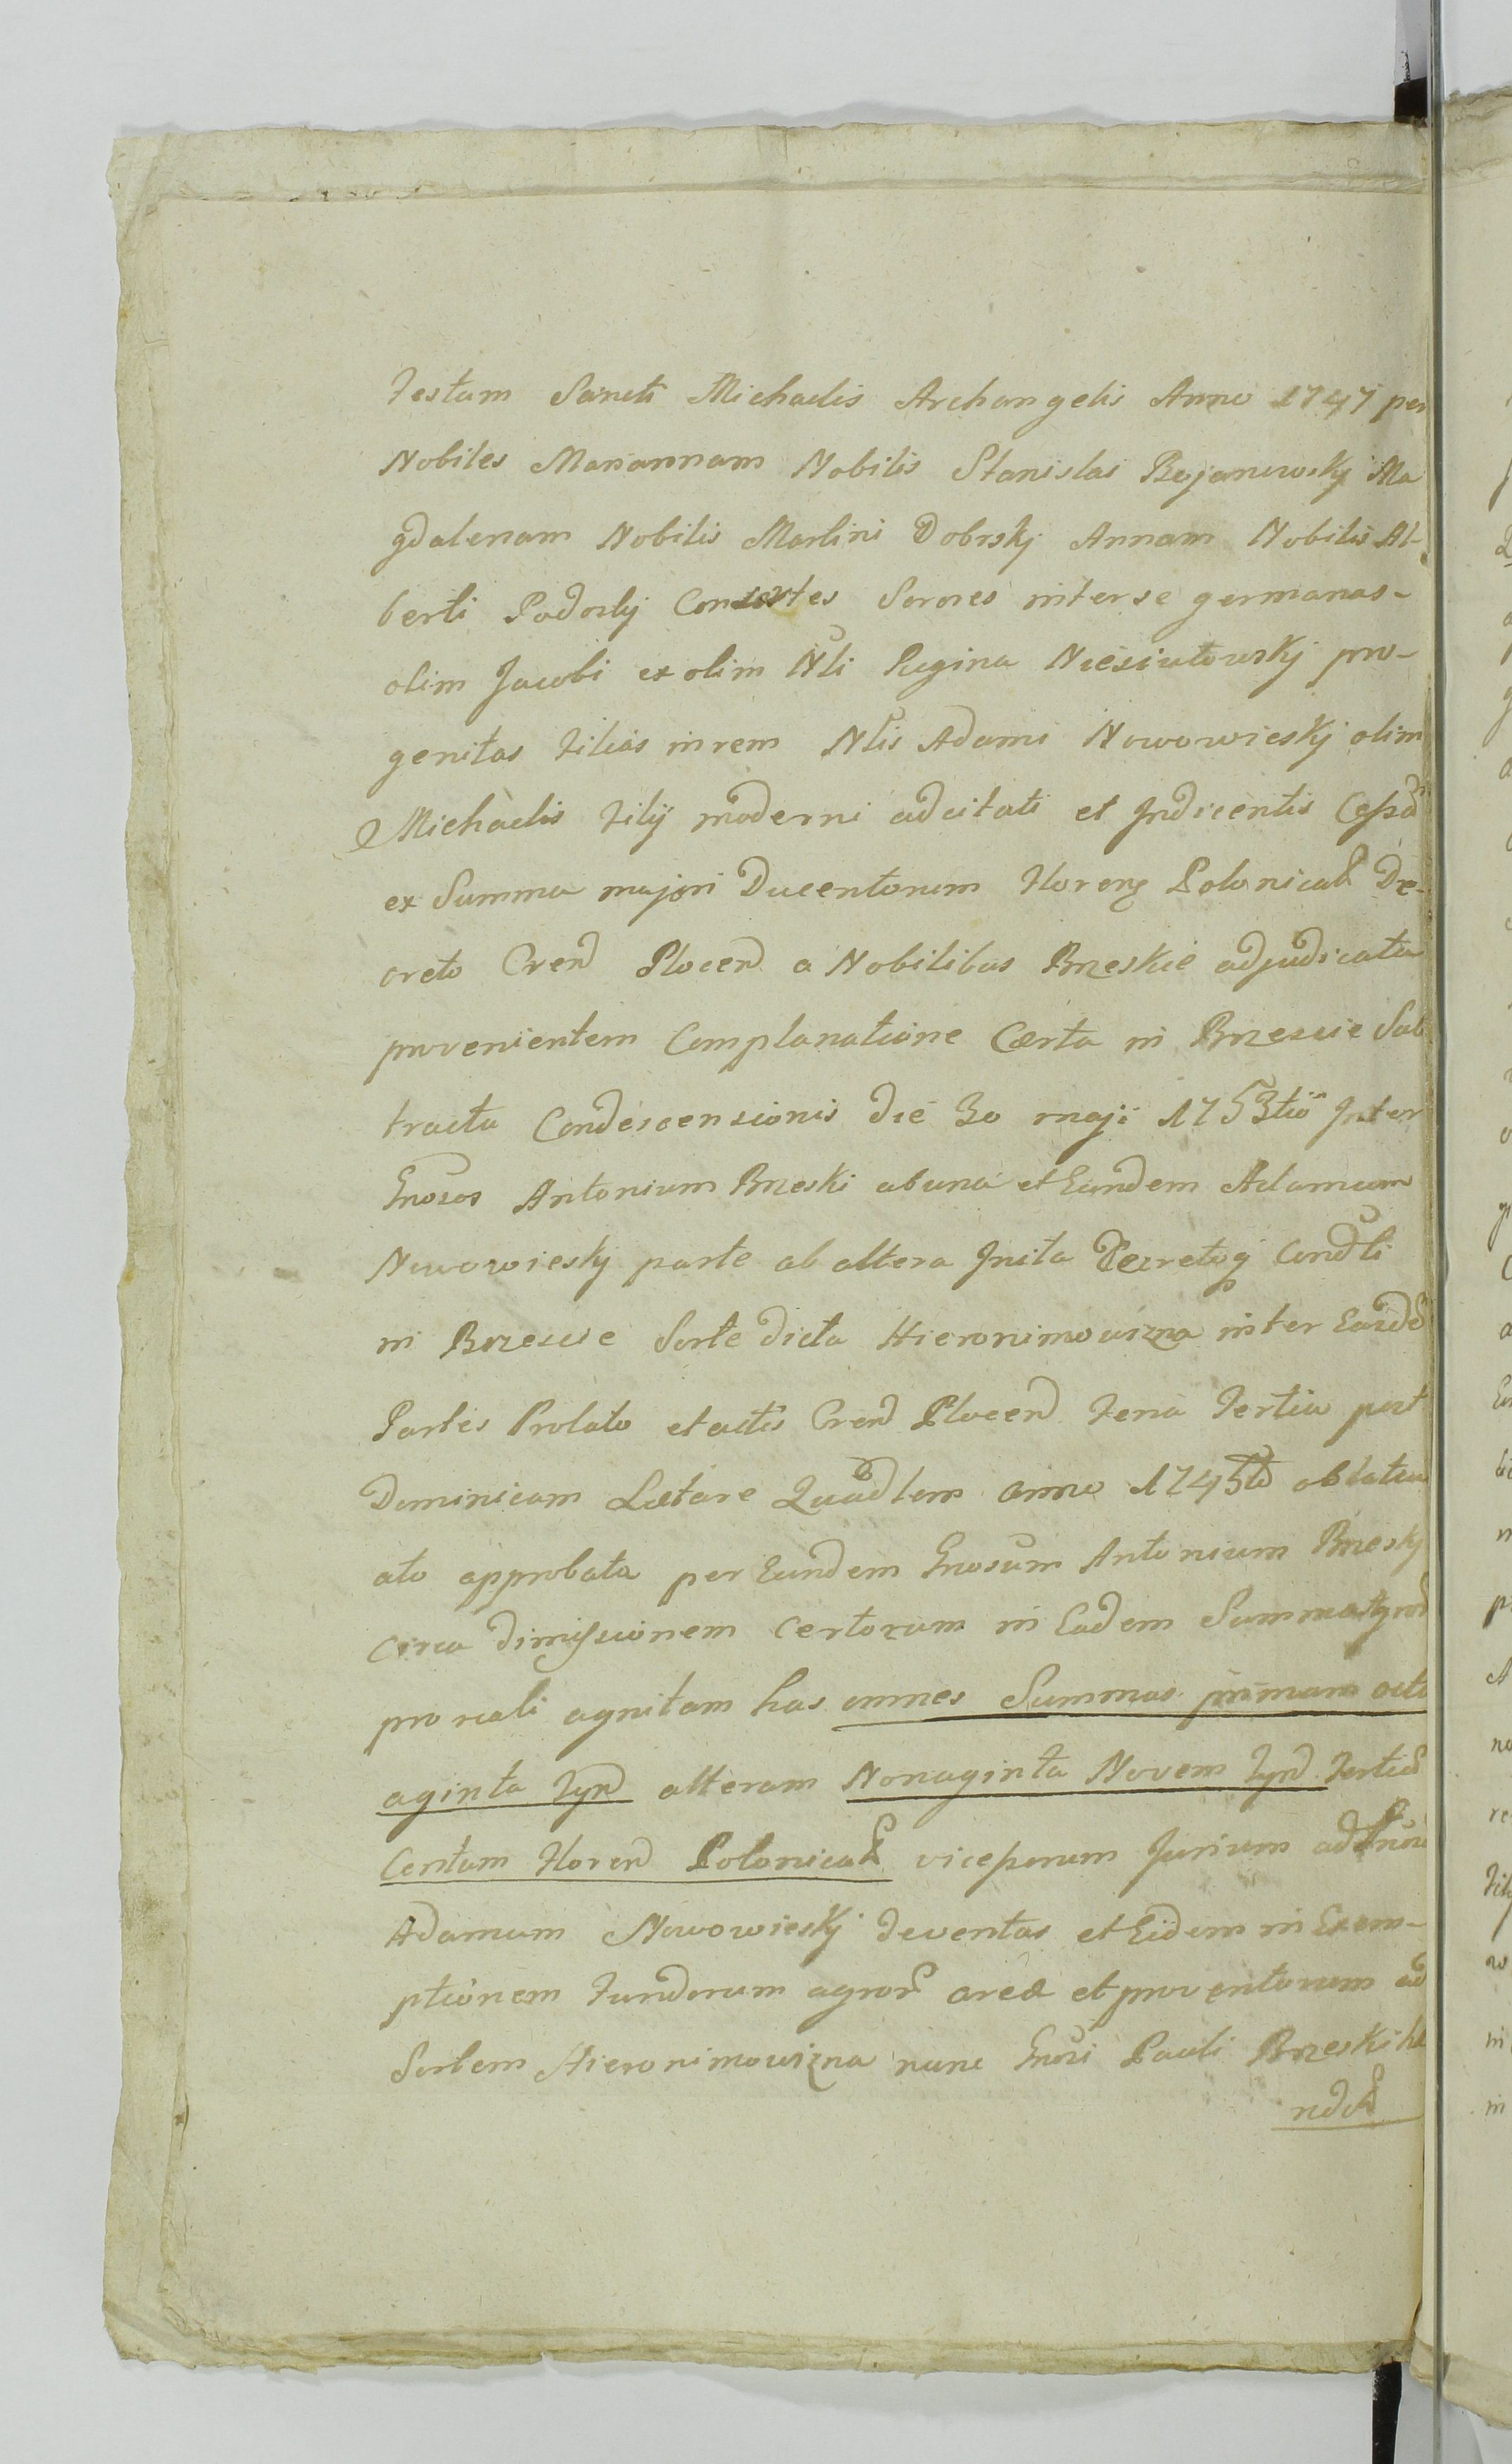 Festum Sancti Michaelis Archangelis Anno 1747 per
Nobiles Mariannam Nobilis Stanislai Bojanowskj Ma
gdalenam Nobilis Martini Dobrskj Annam Nobilis Al-
berti Podoskj Consortes Sorores inter se germanas-
olim Jacobi ex olim Nli Regina Niesiułowskj pro-
genitas Filias in rem Nlis Adami Nowowieskj olim
Michaelis Filij moderni adcitati et Indicentis Cessa
ex Summa majori Ducentorum Floren Polonical De-
creto Cren Plocen a Nobilibus Brzeskie adjudicata
provenientem Complanatione Certa in Brzescie Sub
tractu Condescensionis die 30 maji 1753tio Inter
Gnosos Antonium Brzeski ab una et Eundem Adamum
Nowowieskj parte ab altera Inita Decretoq Condli
in Brzescie Sorte dicta Hieronimowizna inter Easde
Partes Prolato et actis Cren Plocen Feria Tertia post
Dominicam Lætare Quadlem anno 1745to oblatu
ato approbata per Eundem Gnosum Antonium Brzeskj
circa dimissionem certorum in Eadem Summa
pro reali agnitam has omnes Summas primam octu
aginta Tyn alteram Nonaginta Novem Tyn Tertia
Centum Floren Polonical vice Jurium ad
Adamum Nowowieskj deventas et Eidem in Exem-
ptionem Fundorum agror areæ et proventorum ad
Sortem Hieronimowizna nunc Gnosi Pauli Brzeski hæ